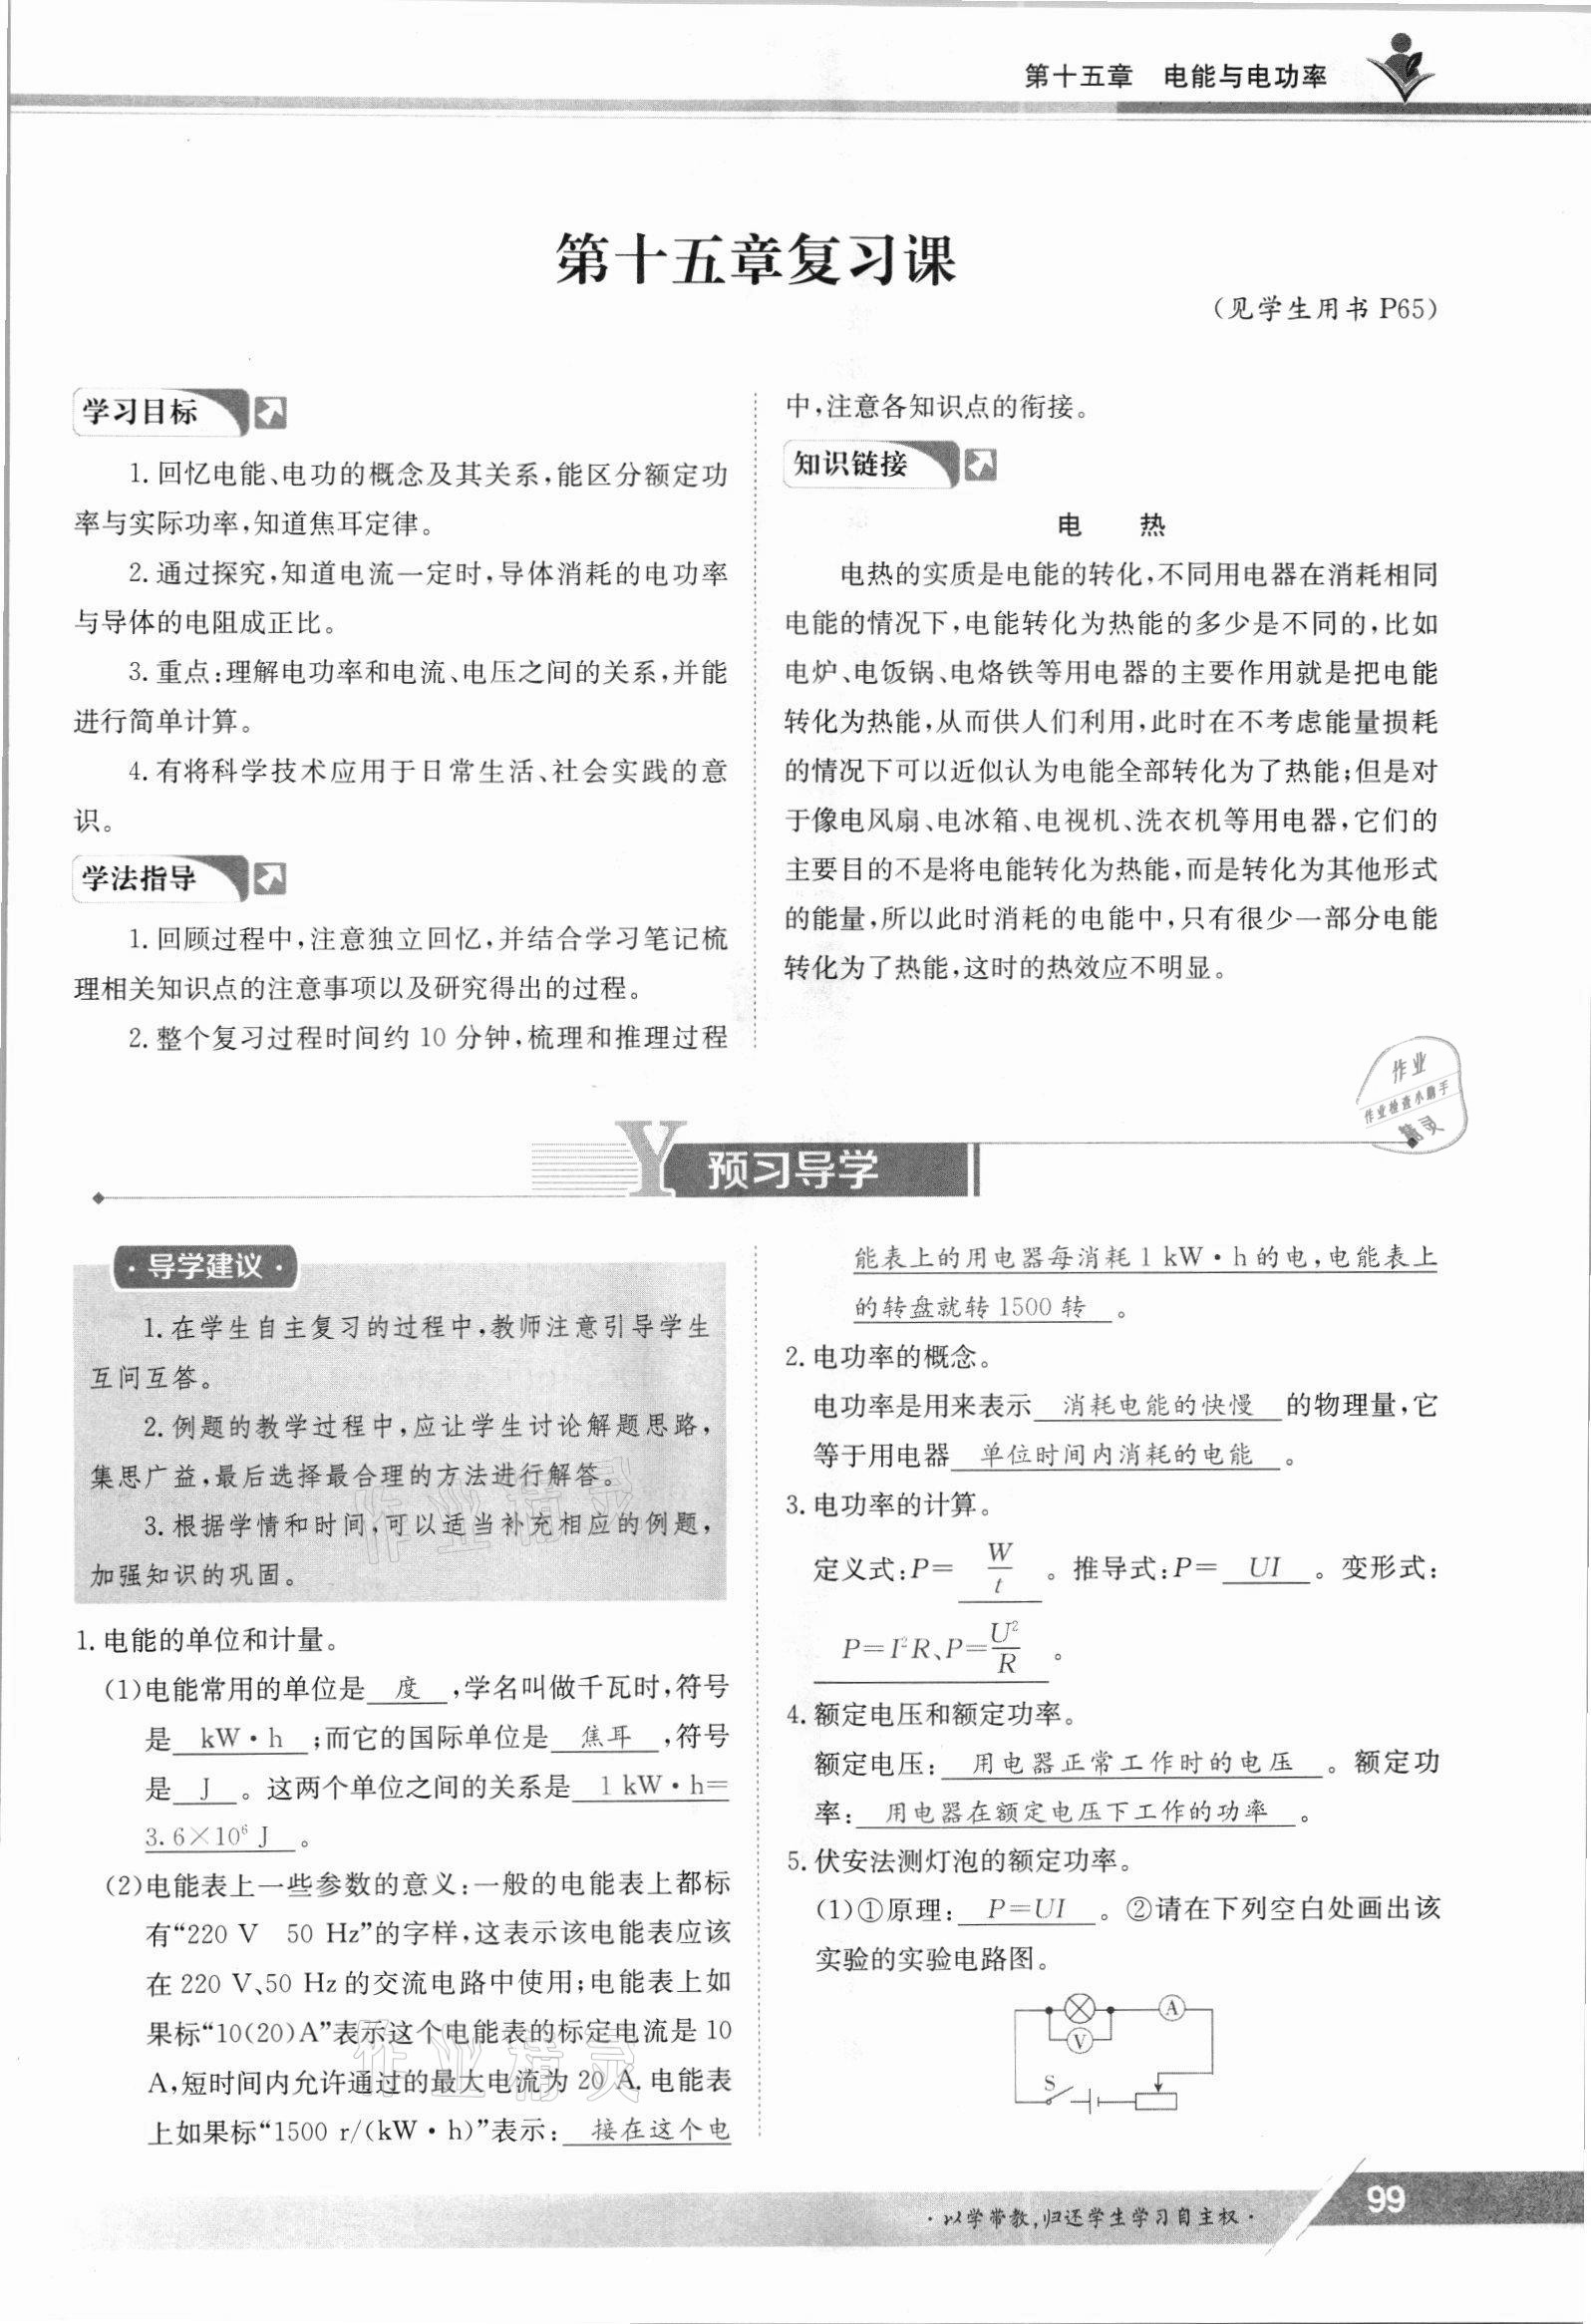 第十五章 电能与电功率
第十五章复习课
(见学生用书 P65)
学习目标
1.回忆电能、电功的概念及其关系,能区分额定功
率与实际功率,知道焦耳定律。
2.通过探究,知道电流一定时,导体消耗的电功率
与导体的电阻成正比。
3.重点:理解电功率和电流、电压之间的关系,并能
进行简单计算。
4.有将科学技术应用于日常生活、社会实践的意
识。
学法指导
1.回顾过程中,注意独立回忆,并结合学习笔记梳
理相关知识点的注意事项以及研究得出的过程。
2.整个复习过程时间约 10 分钟,梳理和推理过程
中,注意各知识点的衔接。
知识链接
电 热
电热的实质是电能的转化,不同用电器在消耗相同
电能的情况下,电能转化为热能的多少是不同的,比如
电炉、电饭锅、电烙铁等用电器的主要作用就是把电能
转化为热能,从而供人们利用,此时在不考虑能量损耗
的情况下可以近似认为电能全部转化为了热能;但是对
于像电风扇、电冰箱、电视机、洗衣机等用电器,它们的
主要目的不是将电能转化为热能,而是转化为其他形式
的能量,所以此时消耗的电能中,只有很少一部分电能
转化为了热能,这时的热效应不明显。
作业
作业检查小助手
精灵
Y 预习导学
·导学建议·
1.在学生自主复习的过程中,教师注意引导学生
互问互答。
2.例题的教学过程中,应让学生讨论解题思路,
集思广益,最后选择最合理的方法进行解答。
3.根据学情和时间,可以适当补充相应的例题,
加强知识的巩固。
作业精灵
1.电能的单位和计量。
(1)电能常用的单位是 度 ,学名叫做千瓦时,符号
是 kW·h ;而它的国际单位是 焦耳 ,符号
是 J 。这两个单位之间的关系是 1 kW·h=
3.6×10⁶ J 。
(2)电能表上一些参数的意义:一般的电能表上都标
有“220 V 50 Hz”的字样,这表示该电能表应该
在 220 V、50 Hz 的交流电路中使用;电能表上如
果标“10(20)A”表示这个电能表的标定电流是 10
A,短时间内允许通过的最大电流为 20 A.电能表
上如果标“1500 r/(kW·h)”表示: 接在这个电
作业精灵
能表上的用电器每消耗 1 kW·h 的电,电能表上
的转盘就转 1500 转 。
2.电功率的概念。
电功率是用来表示 消耗电能的快慢 的物理量,它
等于用电器 单位时间内消耗的电能 。
3.电功率的计算。
定义式:P= W/t 。推导式:P= UI 。变形式:
P=I²R、P=U²/R 。
4.额定电压和额定功率。
额定电压: 用电器正常工作时的电压 。额定功
率: 用电器在额定电压下工作的功率 。
5.伏安法测灯泡的额定功率。
(1)①原理: P=UI 。②请在下列空白处画出该
实验的实验电路图。
A
V
S
·以学带教,归还学生学习自主权·
99